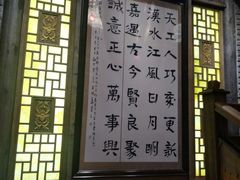 天工人巧更新
漢水江風日月明
嘉遇古今賢良聚
誠意正心萬事興